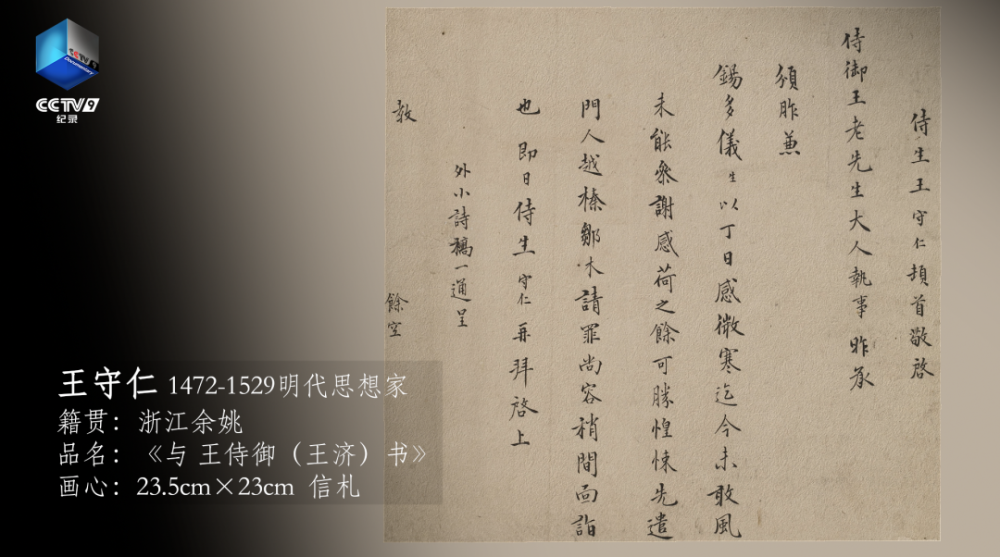 CCTV 9
Documentary
CCTV9
纪录
侍生王守仁頓首敬啓
侍御王老先生大人執事昨承
頒胙兼
錫多儀生以丁日感微寒迄今未敢風
未能參謝感荷之餘可勝惶悚先遣
門人越榛鄒木請罪尚容稍間面詣
也即日侍生守仁再拜啓上
外小詩稿一通呈
教
餘空
王守仁 1472-1529明代思想家
籍贯：浙江余姚
品名：《与 王侍御（王济）书》
画心：23.5cm×23cm 信札